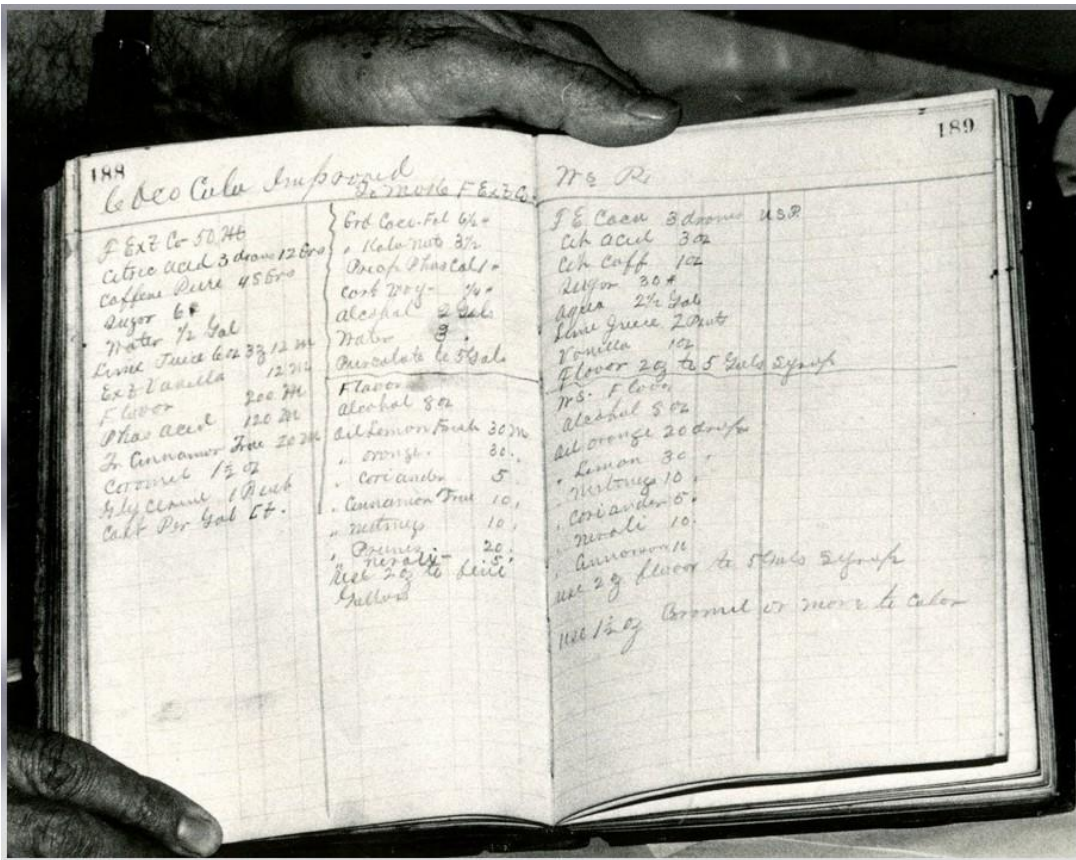 188
Coco Cola Improved
F Ext Co 50 M
Citric Acid 3 drams 12 Grs
Caffeine Pure 45 Grs
Sugar 6 #
Water 1/2 Gal
Lime Juice 6 oz 3z 12 M
Ext Vanilla 12 M
Flavor 200 M
Phos Acid 120 M
Tr Cinnamon True 20 M
Coromel 1 1/2 oz
Glycerine
Cost Per Gal
To Make F Ext Co.
Grd Coco
" Kola nuts 3 1/2
Precip Phos Cal
Alcohol 2 Gals
Water 3 "
Purcolate to 5 Gals
Flavor
Alcohol 8 oz
Oil Lemon 30 M
" orange " 30 "
" Coriander 5 "
" Cinnamon True 10 "
" nutmegs 10 "
" 20 "
" nerali 5
Use 2 oz to
Gallons
189
F E Coca 3 drams U S P.
Cit Acid 3 oz
Cit Caff 1 oz
Sugar 30 #
Aqua 2 1/2 Gal
Lime Juice 2 Pints
Vanilla 1 oz
Flavor 2 oz to 5 Gals Syrup
Alcohol 8 oz
Oil orange 20 drops
" Lemon 30 "
" Nutmegs 10 "
" Coriander 5 "
" Nerali 10 "
" Cinnamon
use 2 oz flavor to 5 Gals Syrup
use 1 1/2 oz Coromel or more to Color